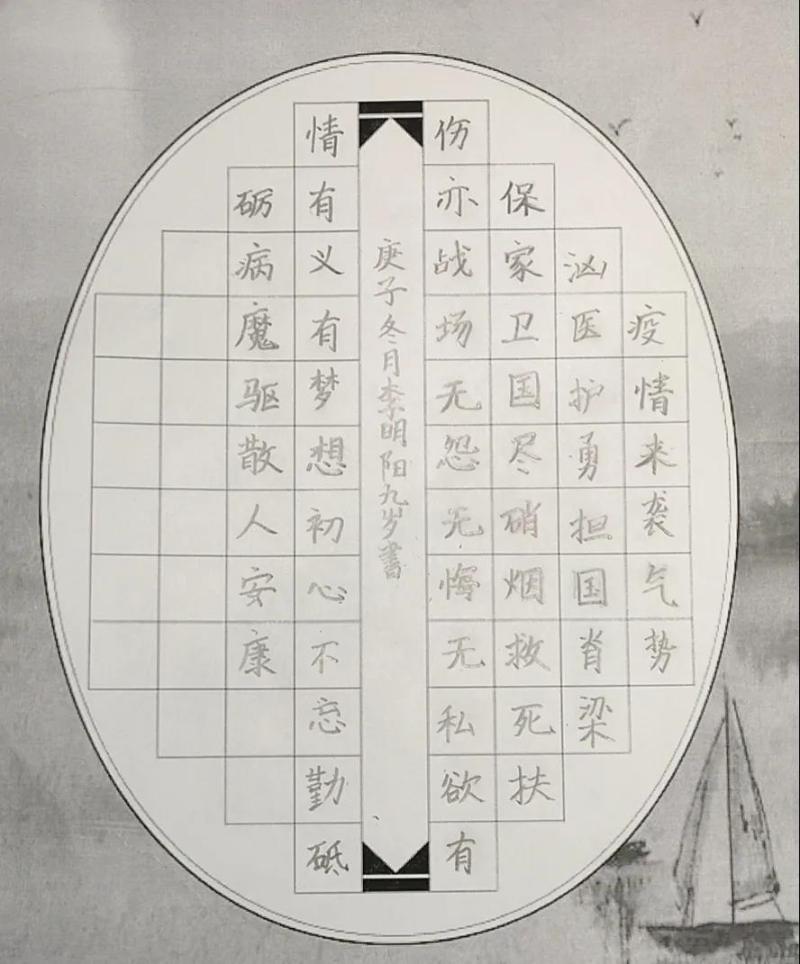 疫情来袭气势
汹医护勇担国肖梁
保家卫国尽硝烟救死扶
伤亦战场无怨无悔无私欲有
庚子冬月李明阳九岁书
情有义有梦想初心不忘勤砥
砺病魔驱散人安康